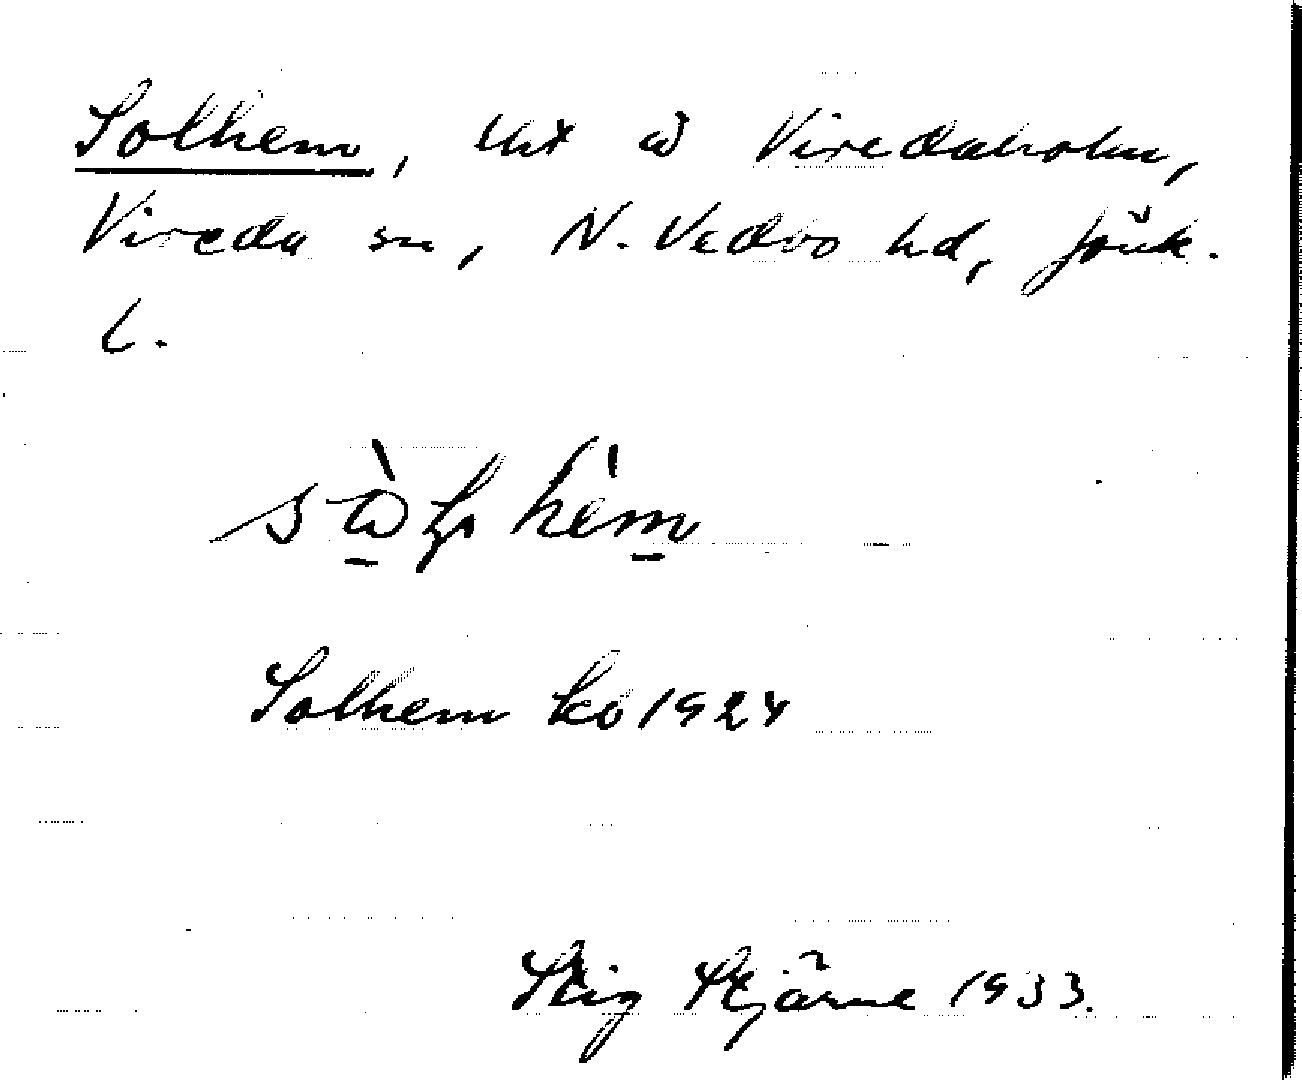 Solhem, lht å Viredaholm,
Vireda sn, N. Vedbo hd, Jönk.
l.
Solhem kb 1924
Stig Stjärne 1933.